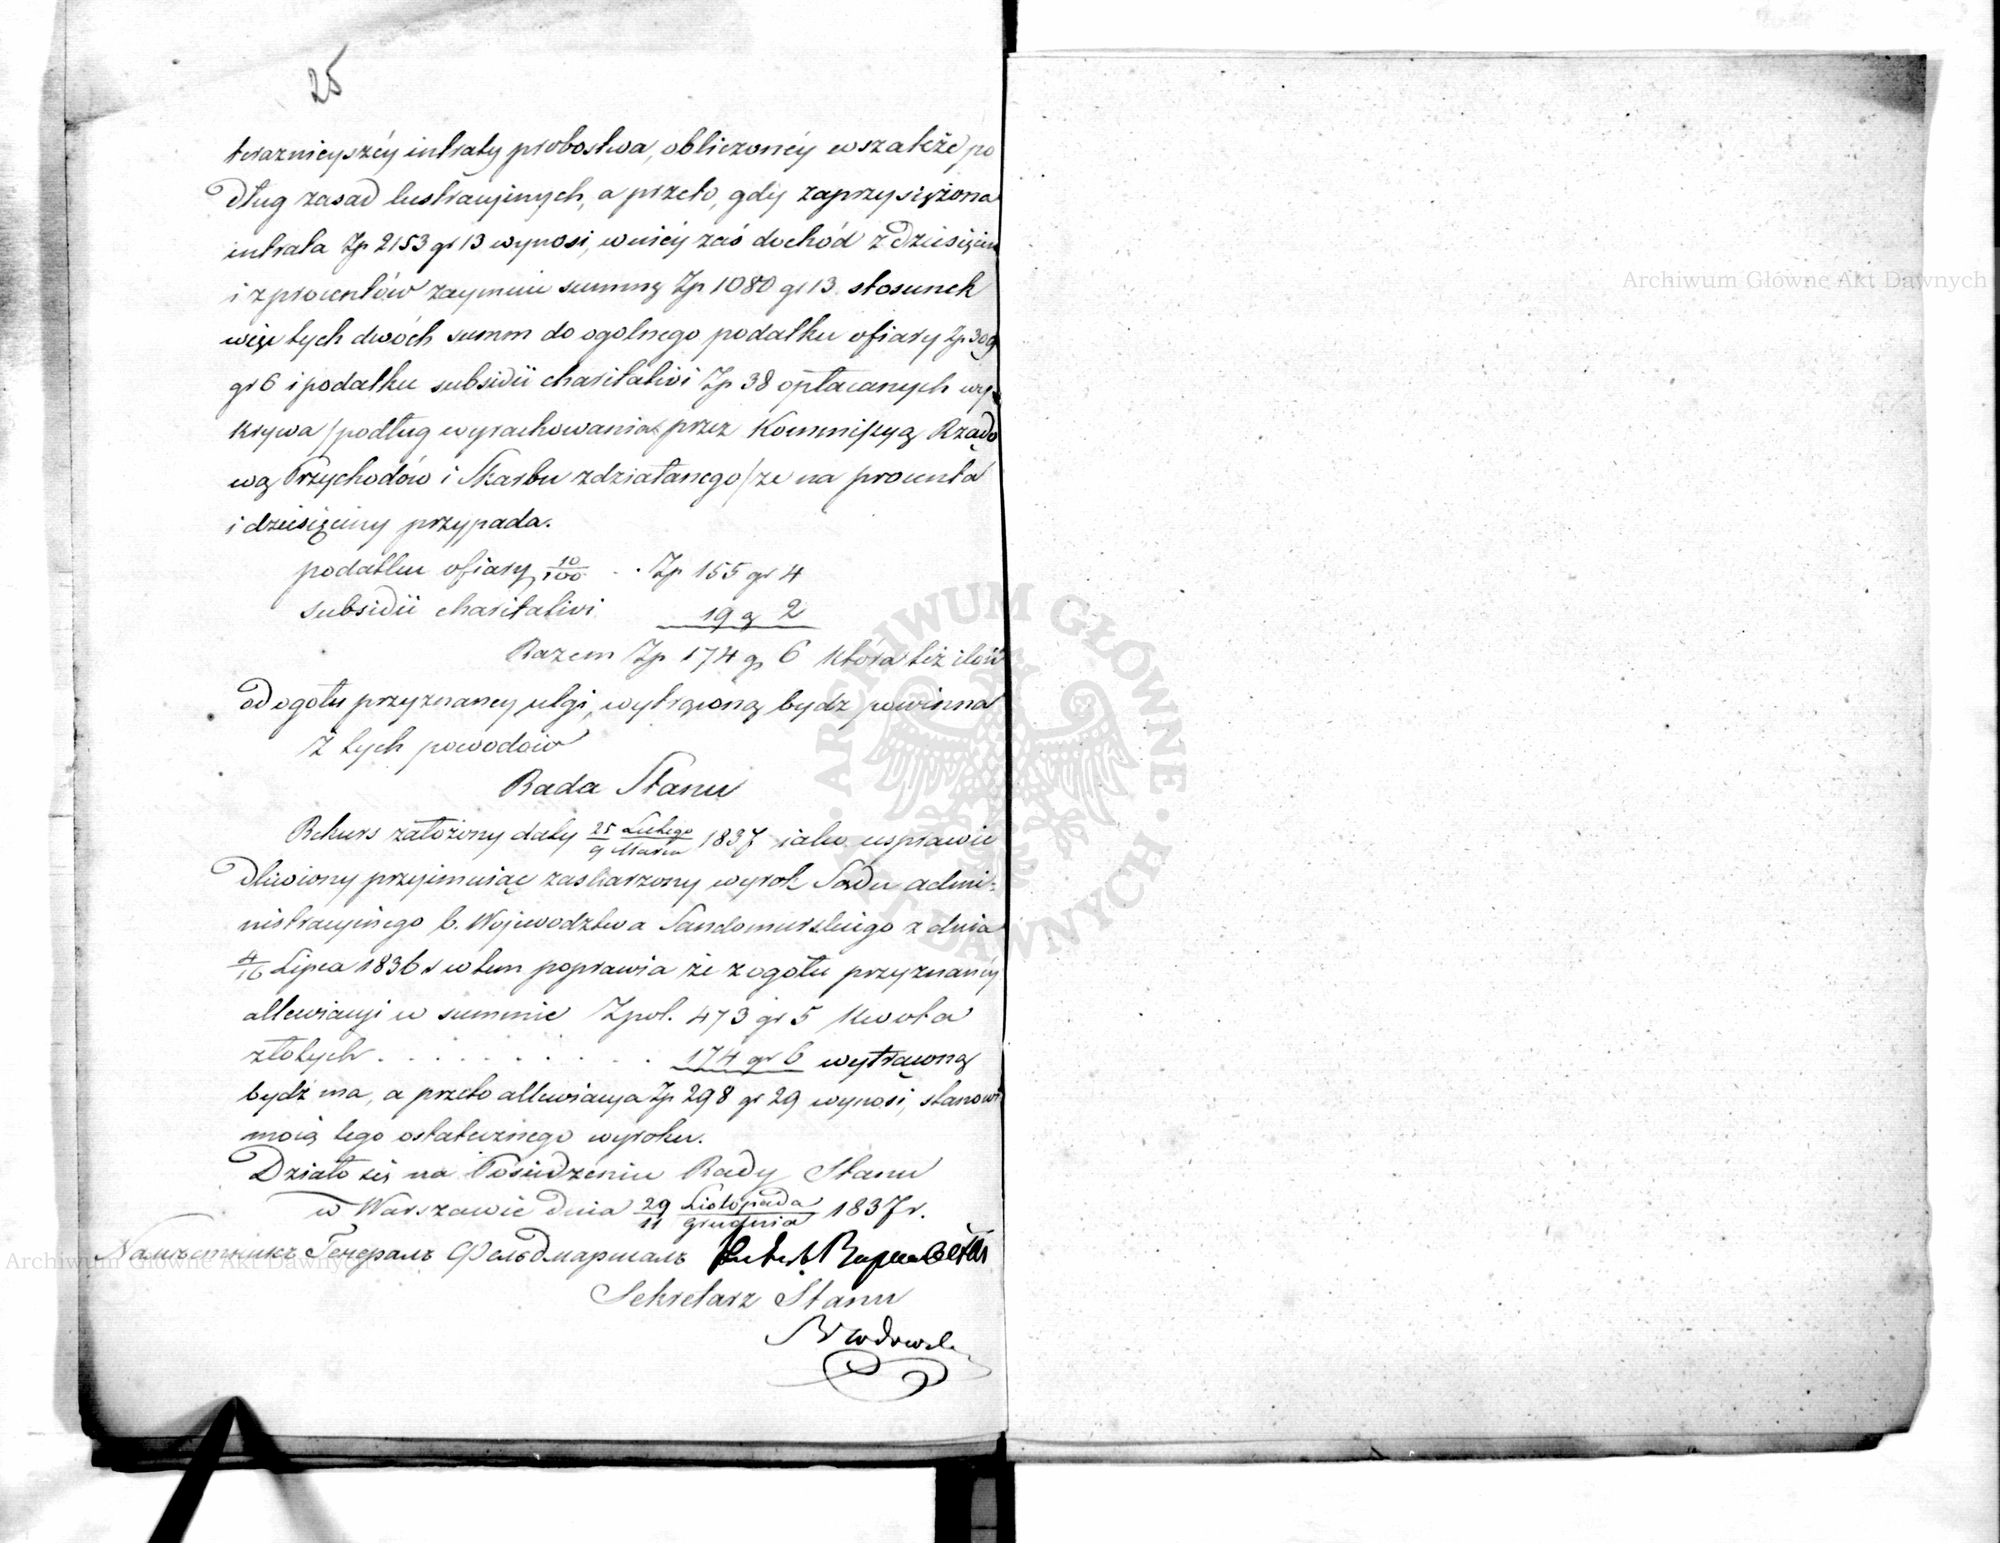 25
teraznieyszéy intraty probostwa, obliczonéy wszakże po
dług zasad lustracyinych, a przeto, gdy zaprzysiężona
intrata Zp 2153 gr 13 wynosi, wniéy zaś dochód z dziesięcin
i z procentów zaymuie summę Zp 1080 gr 13. stosunek
więc tych dwóch summ do ogolnego podatku ofiary Zp 309
gr 6 i podatku subsidii charitativi Zp 38 opłacanych wy
krywa /podług wyrachowania przez Kommissyą Rządo
wą Przychodów i Skarbu zdziałanego/ że na procenta
i dziesięciny przypada.
podatku ofiary 10/100 . . Zp 155 gr 4
subsidii charitativi 19 g 2
Razem Zp 174 g 6 która też ilość
od ogołu przyznaney ulgi, wytrąconą bydz powinna
Z tych powodów
Rada Stanu
Rekurs założony daty 25 Lutego/9 Marca 1837 iako usprawie
dliwiony przyimuiąc zaskarzony wyrok Sądu admi-
nistracyinego b. Wojewodztwa Sandomirskiego z dnia
4/16 Lipca 1836 r wtem poprawia że z ogołu przyznanéy
allewiacyi w summie Zpol. 473 gr 5 kwota
złotych . . . . . . . . . 174 gr 6 wytrąconą
bydź ma, a przeto allewiacya Zp 298 gr 29 wynosi, stanowi
mocą tego ostatecznego wyroku.
Działo się na Posiedzeniu Rady Stanu
w Warszawie dnia 29 Listopada/11 Grudnia 1837 r.
Намѣстникъ Генералъ Фельдмаршалъ
Sekretarz Stanu
Archiwum Główne Akt Dawnych
Archiwum Główne Akt Dawnych
ARCHIWUM GŁÓWNE AKT DAWNYCH